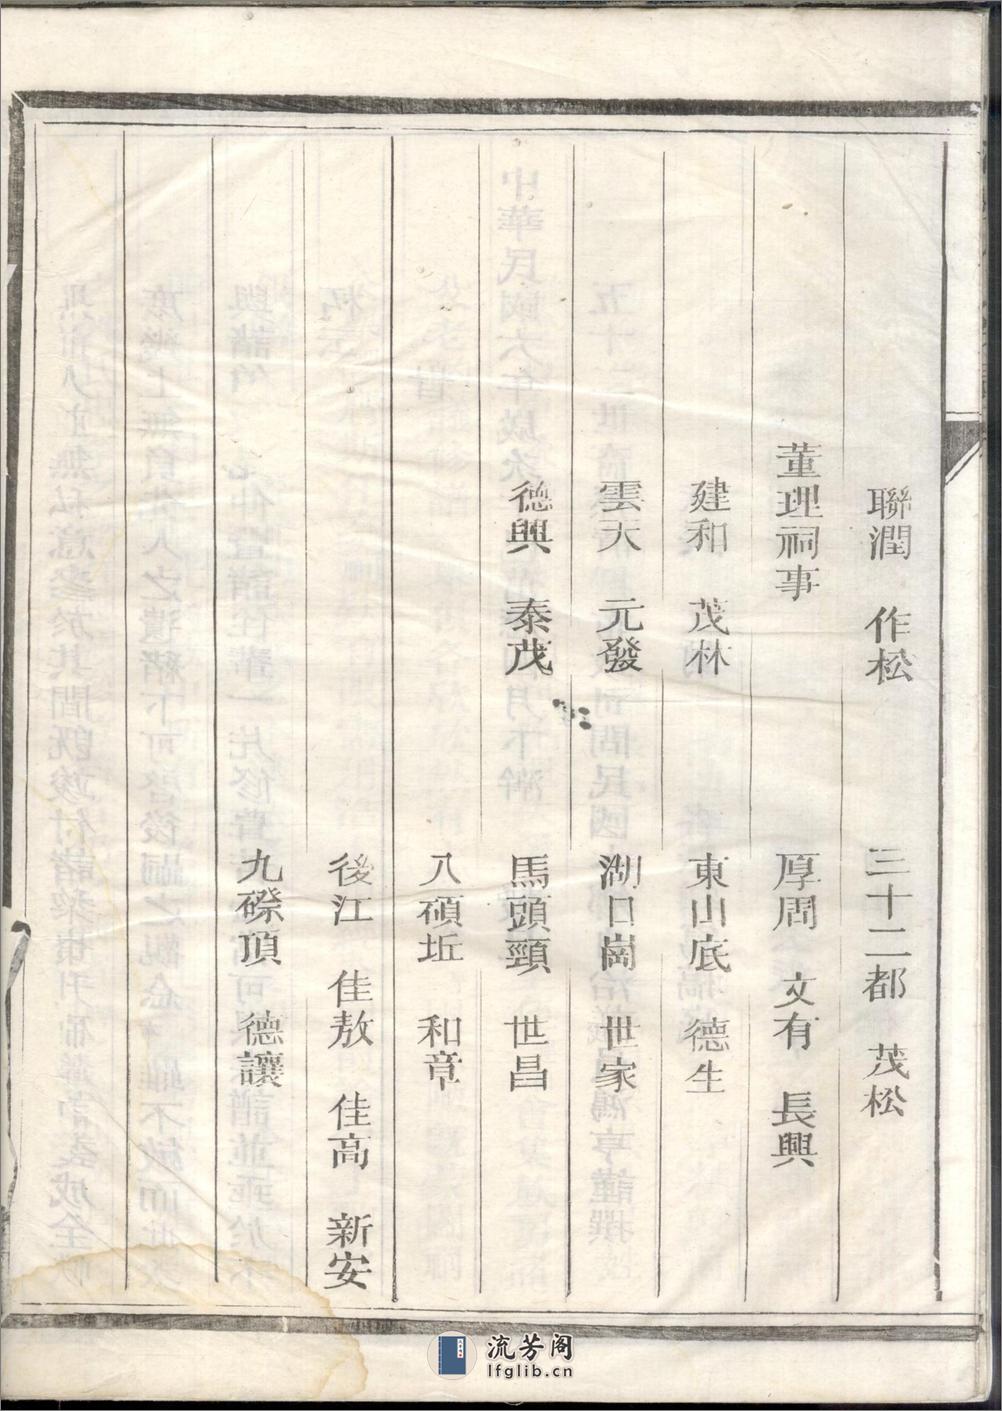 聯潤　作松　三十二都　茂松
董理祠事　厚周　文有　長興
建和　茂林　東山底　德生
雲天　元發　湖口崗　世家
德興　泰茂　馬頭頸　世昌
八碩坵　和章
後江　佳敖　佳高　新安
九磜頂　德讓
流芳阁
lfglib.cn